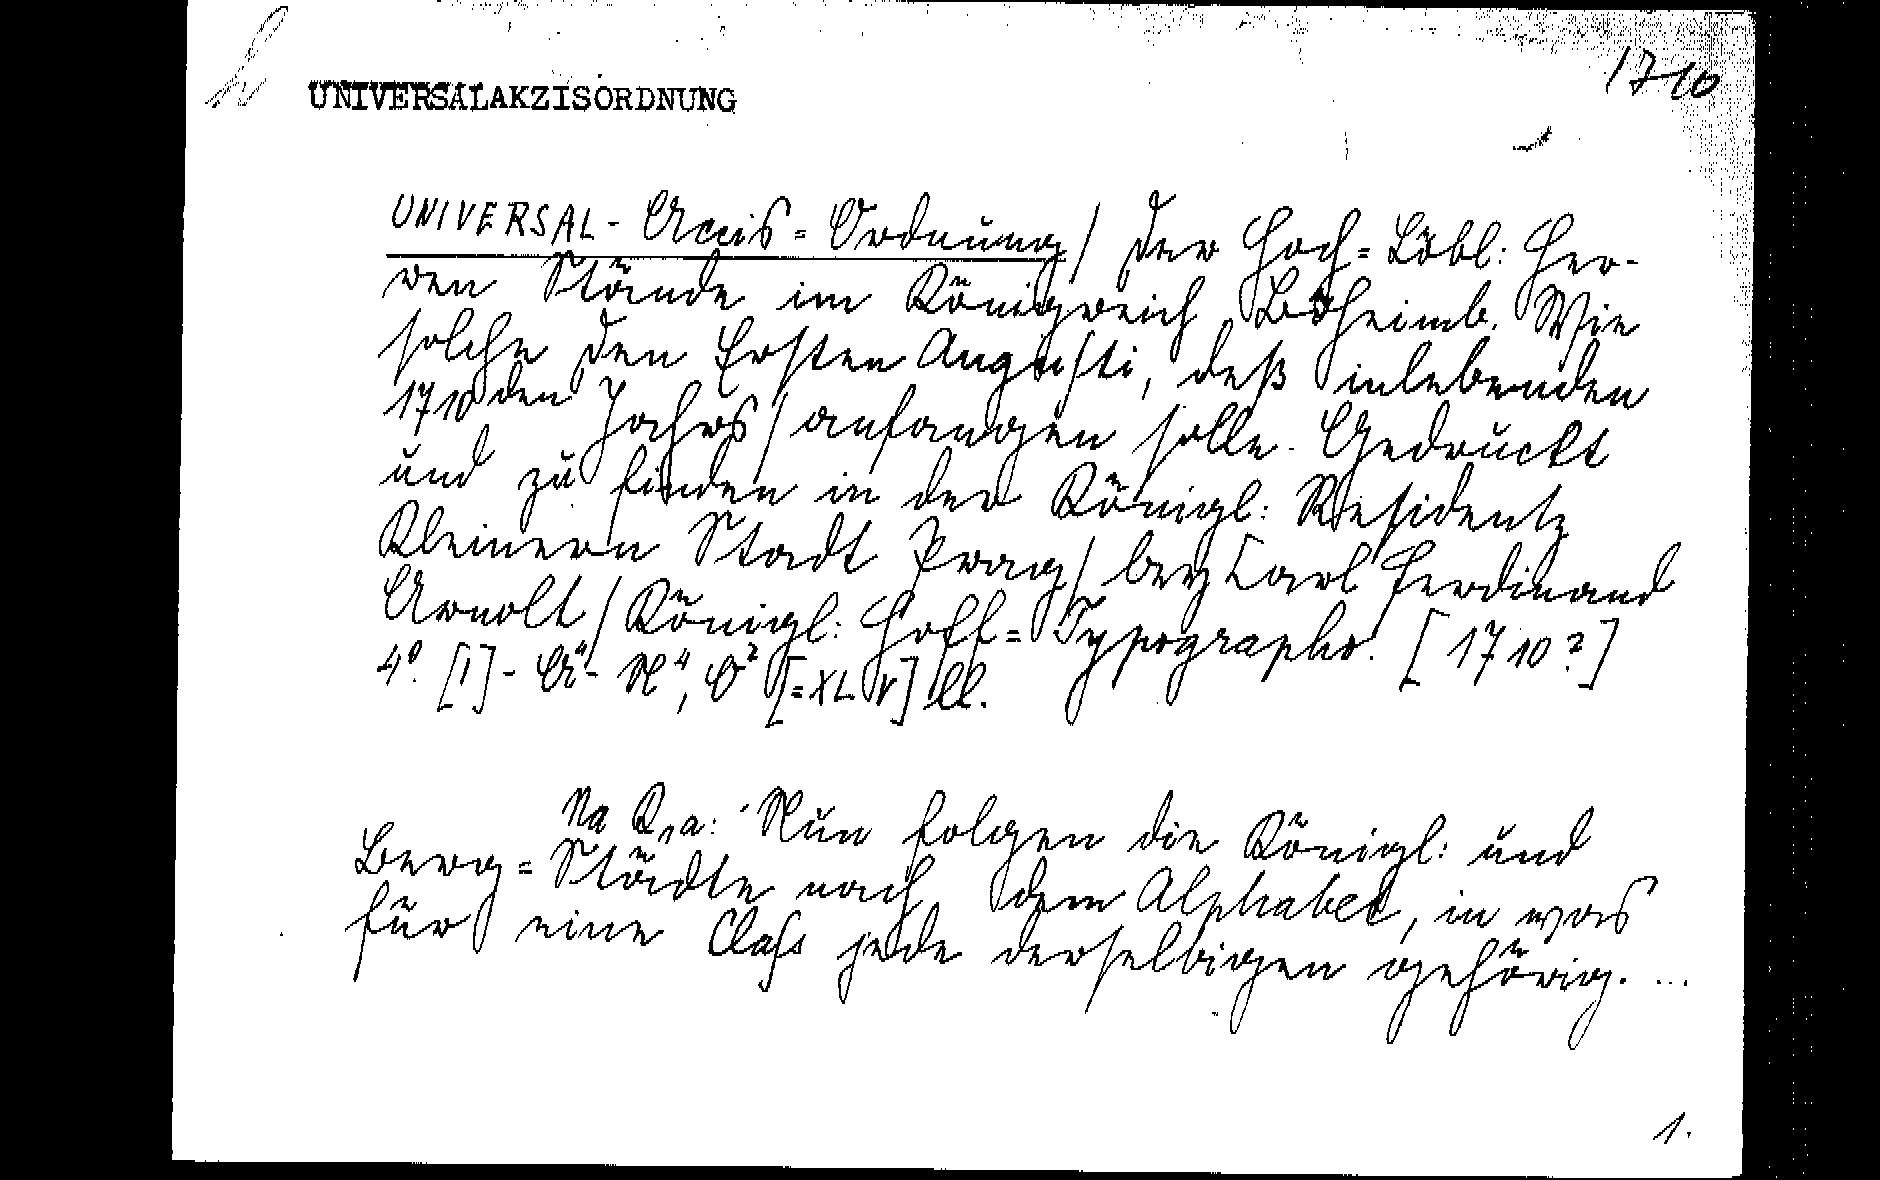 1710
UNIVERSALAKZISORDNUNG
UNIVERSAL - Accis = Ordnung / Der Hoch = Löbl: Her-
ren Stände im Königreich Böheimb. Wie
solche den Ersten Augusti, deß inlebenden
1710den Jahrs / anfangen solle. Gedruckt
und zu finden in der Königl: Residentz
Kleinern Stadt Prag / bey Carl Ferdinand
Arnolt / Königl: Hoff = Typographo. [1710?]
4° [1] - A⁴ - K⁴, O² [=XLV] ll.
Na K₁a: Nun folgen die Königl: und
Berg = Städte nach dem Alphabet, in was
für eine Class jede derselbigen gehörig. ...
1.